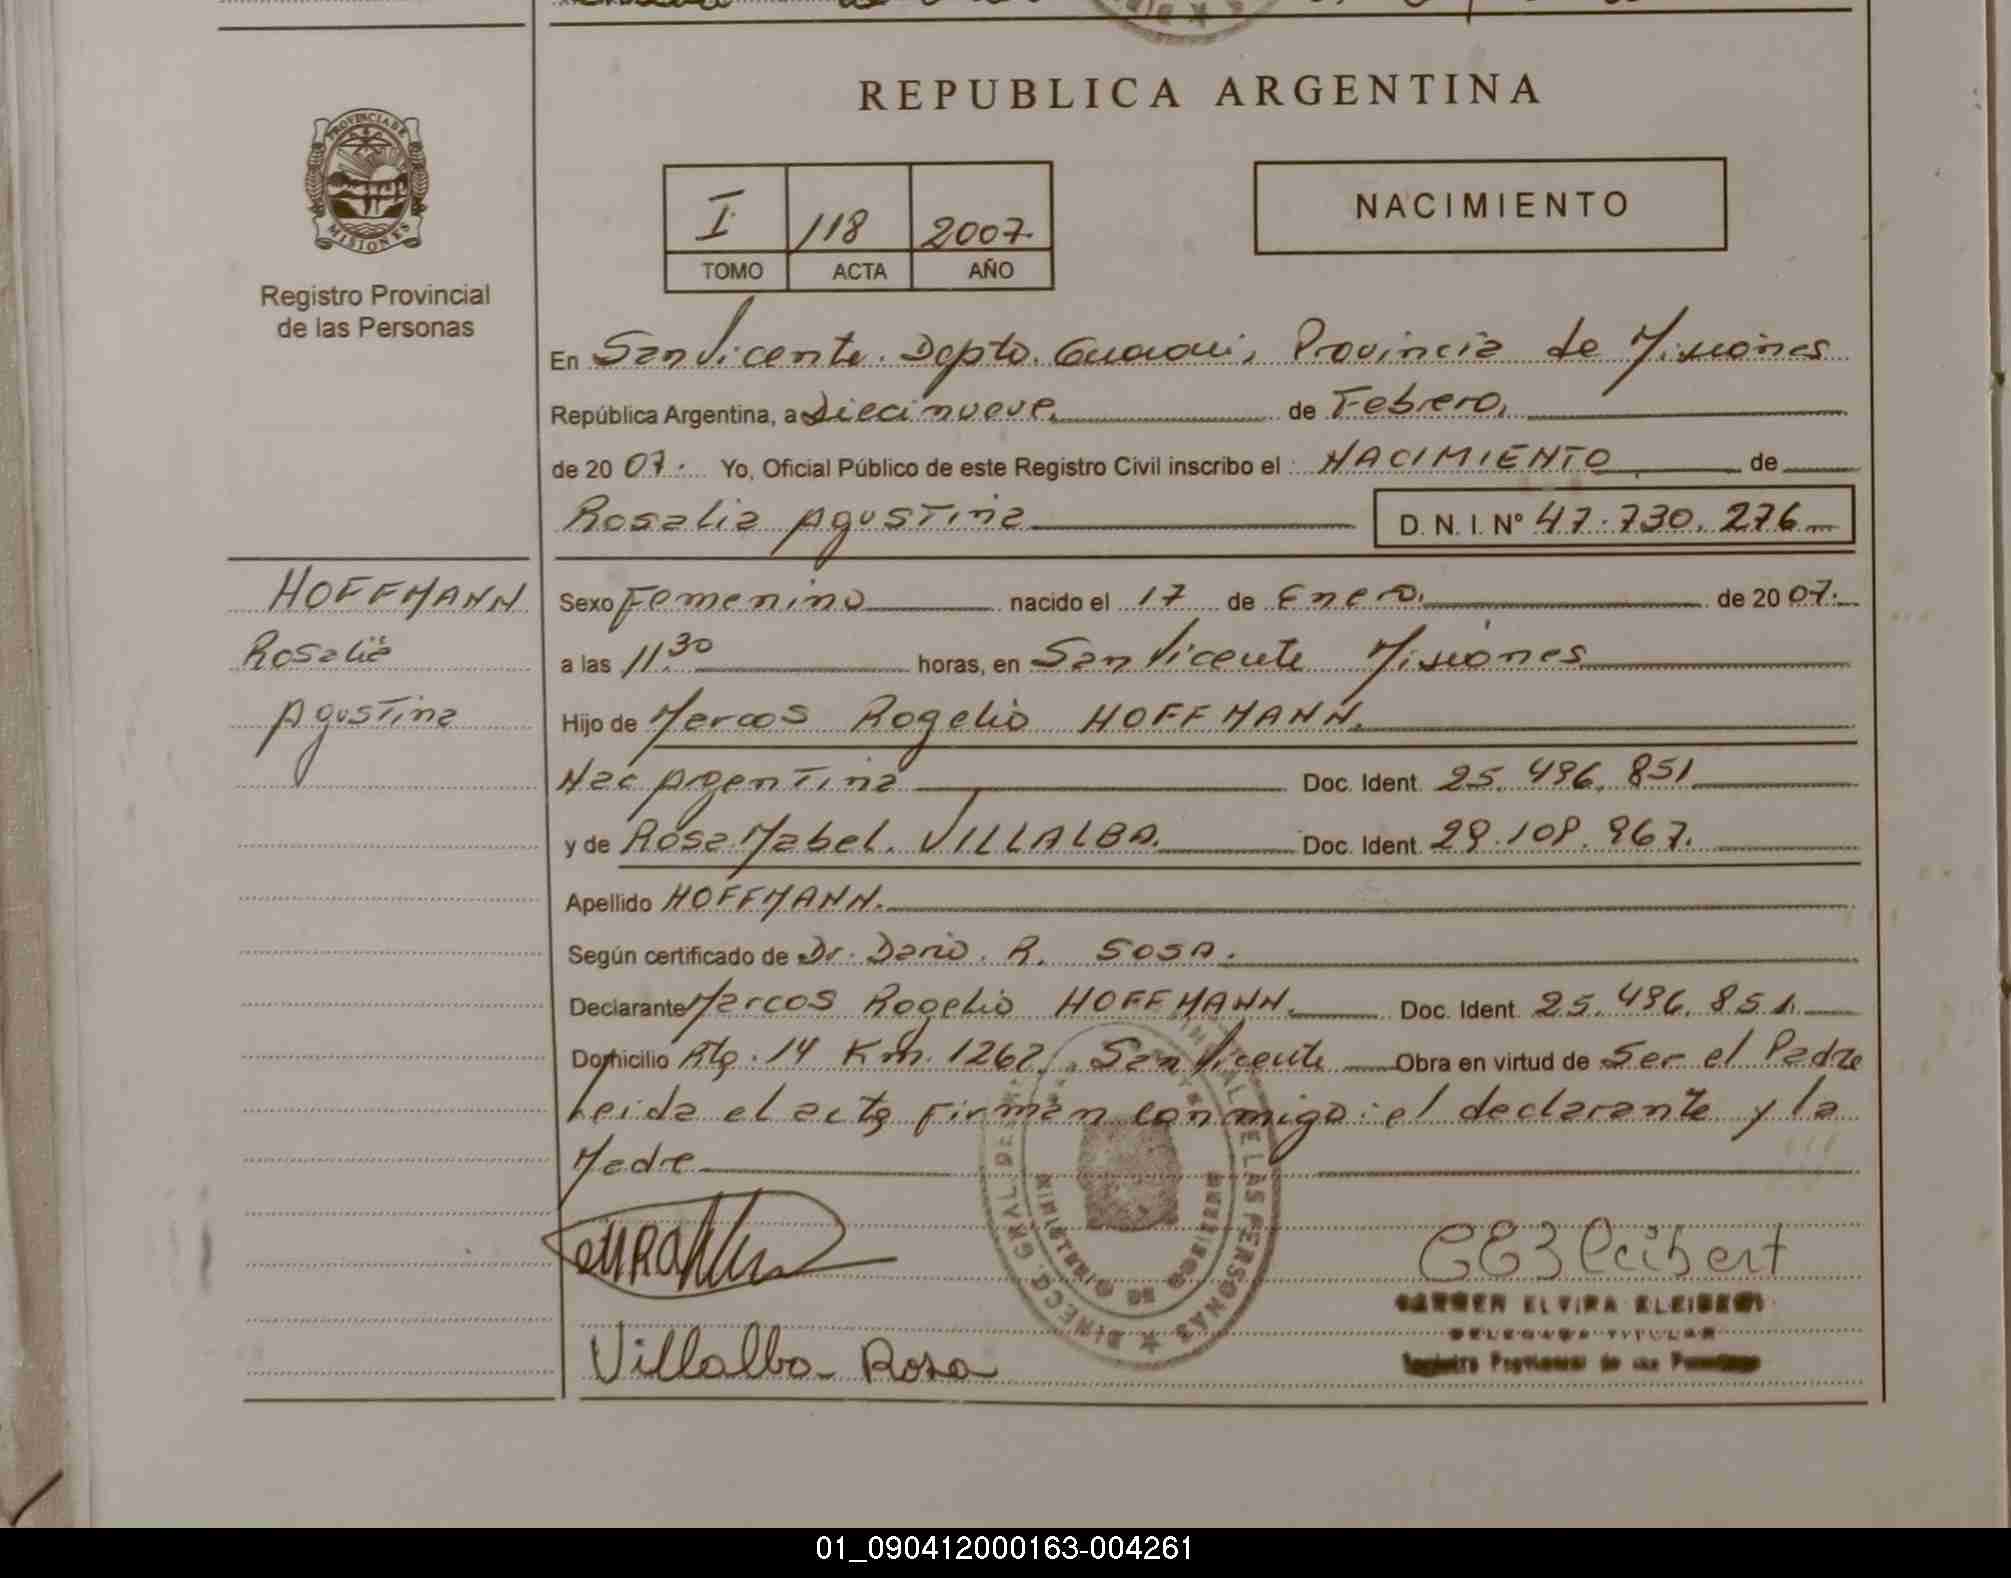 REPUBLICA ARGENTINA
PROVINCIA DE
MISIONES
Registro Provincial
de las Personas
I 118 2007.
TOMO ACTA AÑO
NACIMIENTO
En San Vicente. Depto. Guarani, Provincia de Misiones
República Argentina, a Diecinueve. de Febrero,
de 20 07. Yo, Oficial Público de este Registro Civil inscribo el NACIMIENTO de
Rosalia Agustina D. N. I. Nº 47.730.276
HOFFMANN
Rosalia
Agustina
Sexo Femenino nacido el 17 de Enero. de 20 07.
a las 11.30 horas, en San Vicente Misiones
Hijo de Marcos Rogelio HOFFMANN.
Nac Argentina Doc. Ident. 25.496.851
y de Rosa Mabel. VILLALBA. Doc. Ident. 29.109.967.
Apellido HOFFMANN.
Según certificado de Dr. Dario. R. SOSA.
Declarante Marcos Rogelio HOFFMANN. Doc. Ident. 25.496.851.
Domicilio Rta. 14 Km. 1262. San Vicente Obra en virtud de Ser el Padre
Leida el acta firman conmigo: el declarante y la
Madre
DE LAS PERSONAS ★ DIRECC. GRAL. DE
MINISTERIO DE GOBIERNO
Villalba Rosa
CARMEN ELVIRA KLEIBERT
DELEGADA TITULAR
Registro Provincial de las Personas
01_090412000163-004261